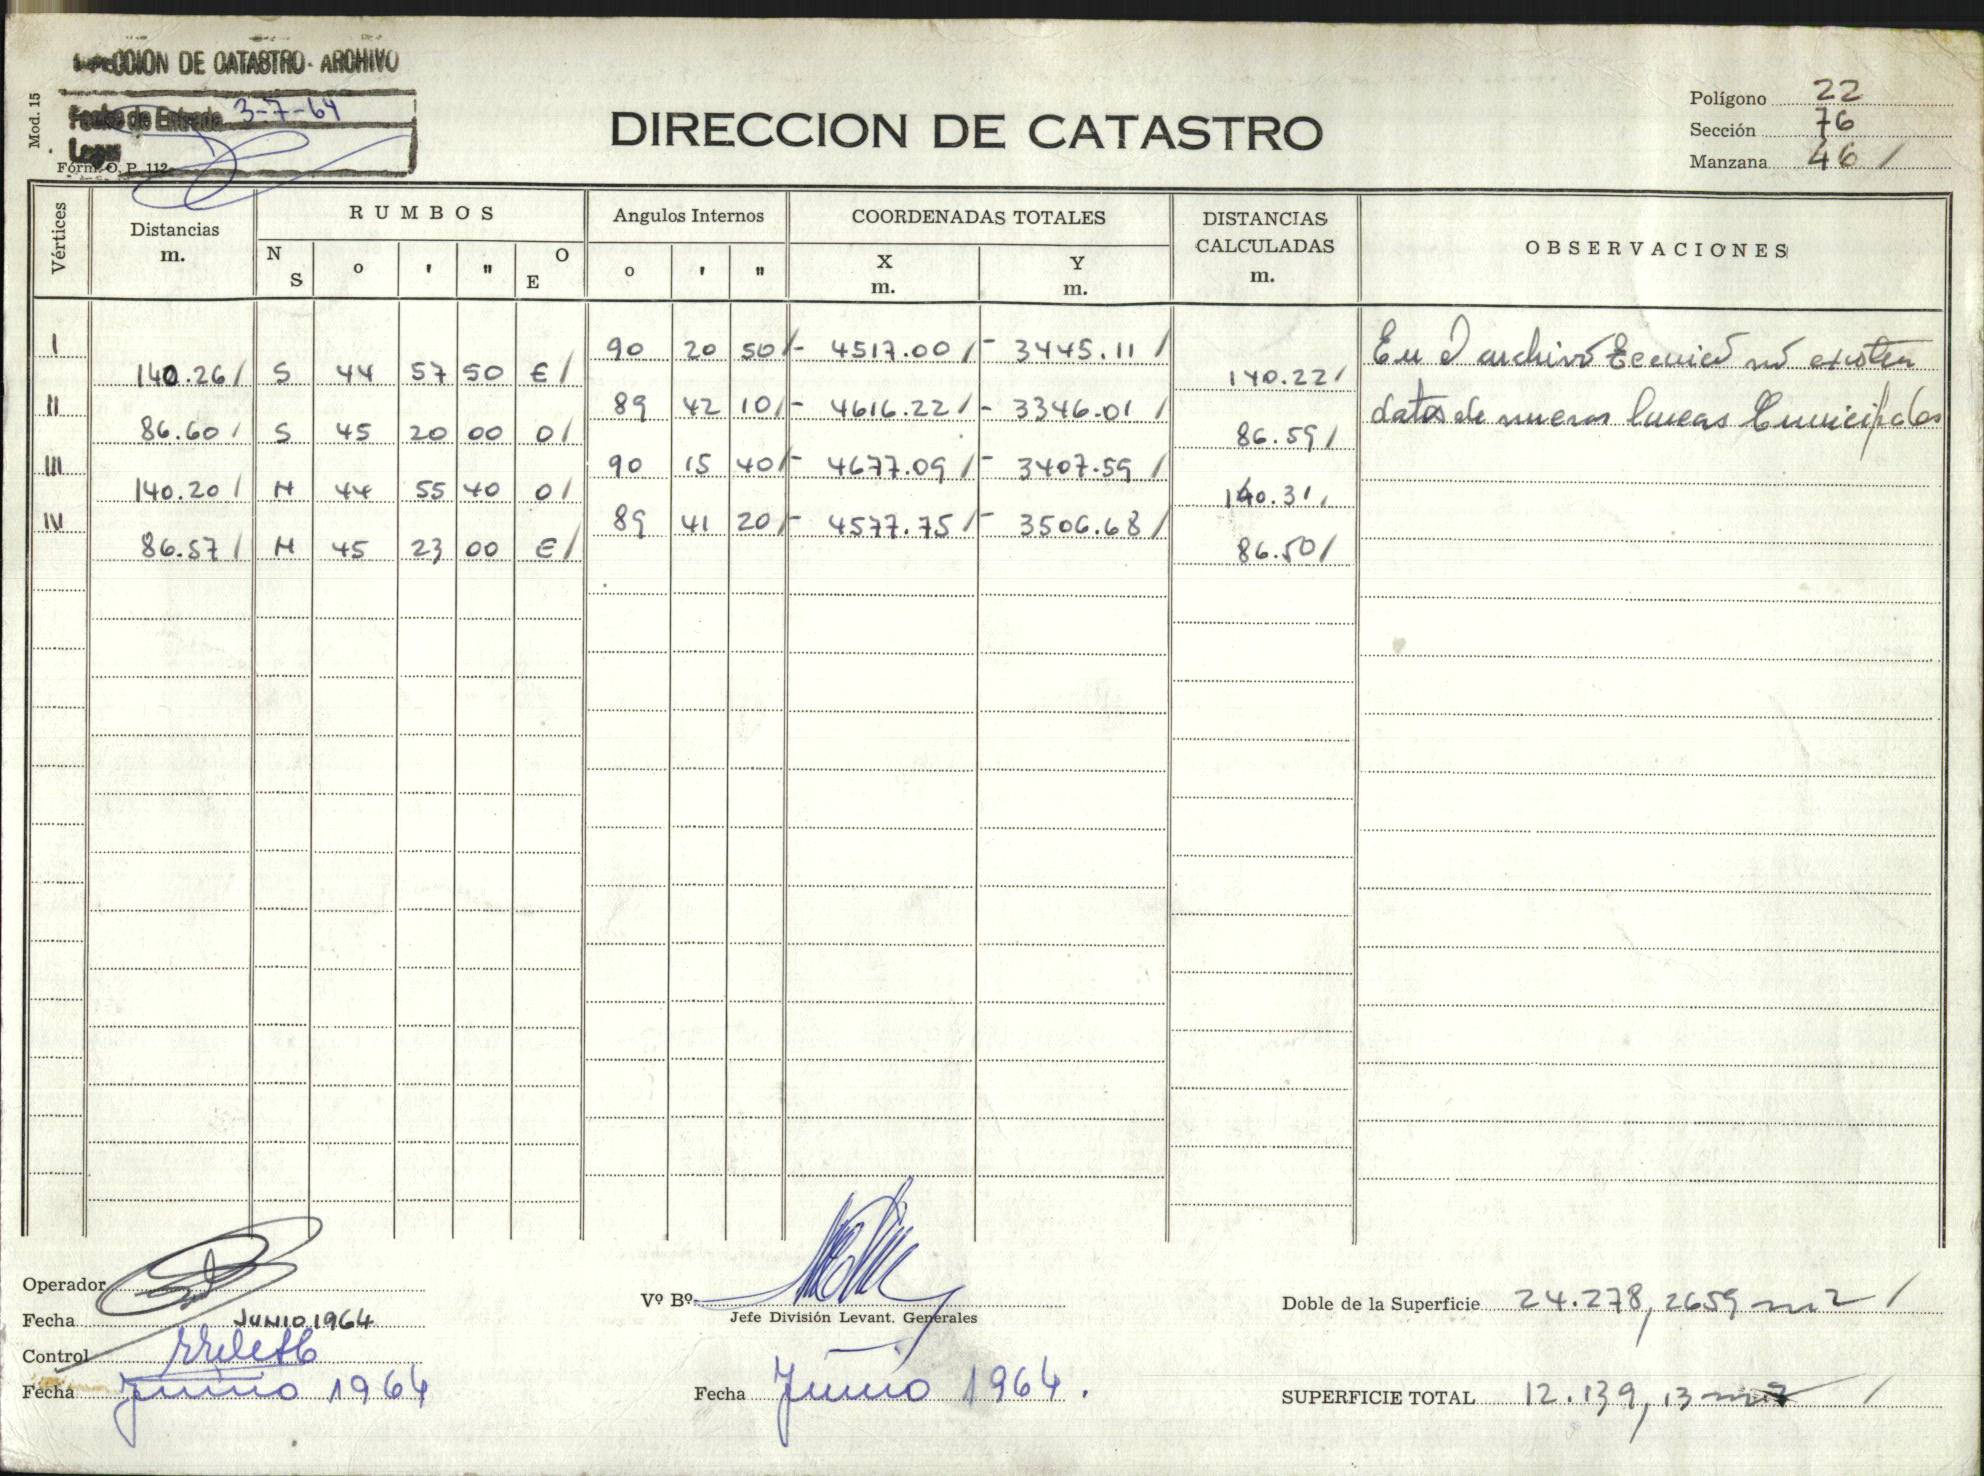 DIRECCION DE CATASTRO - ARCHIVO
Mod. 15
Fecha de Entrada 3-7-64
Form. O. P. 112
DIRECCION DE CATASTRO
Polígono 22
Sección 76
Manzana 46 /
Vértices Distancias m. RUMBOS N S o ' " O E Angulos Internos o ' " COORDENADAS TOTALES X m. Y m. DISTANCIAS CALCULADAS m. OBSERVACIONES
I 90 20 50 / - 4517.00 / - 3445.11 /
140.26 / S 44 57 50 E / 140.22 /
II 89 42 10 / - 4616.22 / - 3346.01 /
86.60 / S 45 20 00 O / 86.59 /
III 90 15 40 / - 4677.09 / - 3407.59 /
140.20 / N 44 55 40 O / 140.31 /
IV 89 41 20 / - 4577.75 / - 3506.68 /
86.57 / N 45 23 00 E / 86.50 /
En el archivo tecnico no existen
datos de nuevas lineas Municipales
Operador
Fecha JUNIO 1964
Control
Fecha Junio 1964
Vº Bº
Jefe División Levant. Generales
Fecha Junio 1964.
Doble de la Superficie 24.278,2659 m2 /
SUPERFICIE TOTAL 12.139,13 m2 /